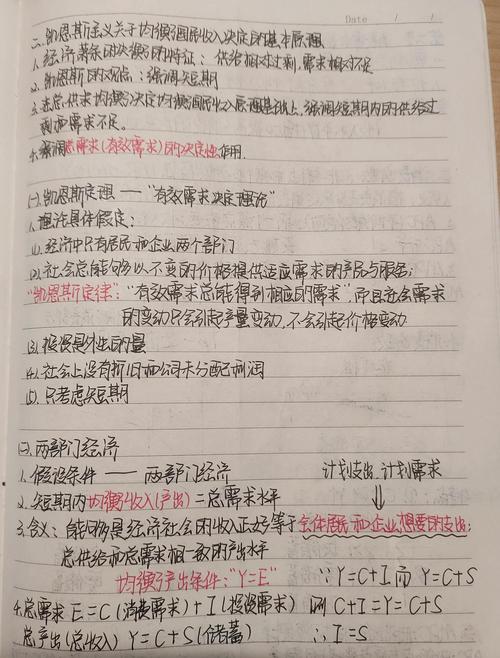 Date / /
二、凯恩斯主义关于均衡国民收入决定的基本原理
1. 经济萧条的决衡的特征：供给相对过剩，需求相对不足
2. 凯恩斯的观点：强调短期
3. 在总供求均衡决定均衡国民收入原理基础上，强调短期内的供给过
剩和需求不足。
4. 强调总需求(有效需求)的决定性作用.
(一)、凯恩斯定理 —— "有效需求决定理论"
1. 理论具体假定：
(1). 经济中只有居民和企业两个部门
(2). 社会总能够以不变的价格提供适应需求的产品与服务；
"凯恩斯定律"："有效需求总能得到相应的需求"，而且社会需求
的变动只会引起产量变动，不会引起价格变动
(3). 投资是外生的量
(4). 社会上没有折旧和公司未分配利润
(5). 只考虑短期
(二)、两部门经济
1. 假设条件 —— 两部门经济 计划支出、计划需求
2. 短期内均衡收入(产出)=总需求水平
3. 含义：能够是经济社会的收入正好等于全体居民和企业想要的支出；
总供给和总需求相一致的产出水平
均衡产出条件："Y=E" ∵Y=C+I 而 Y=C+S
4. 总需求 E=C(消费需求)+I(投资需求) 则 C+I=Y=C+S
总产出(总收入) Y=C+S(储蓄) ∴I=S